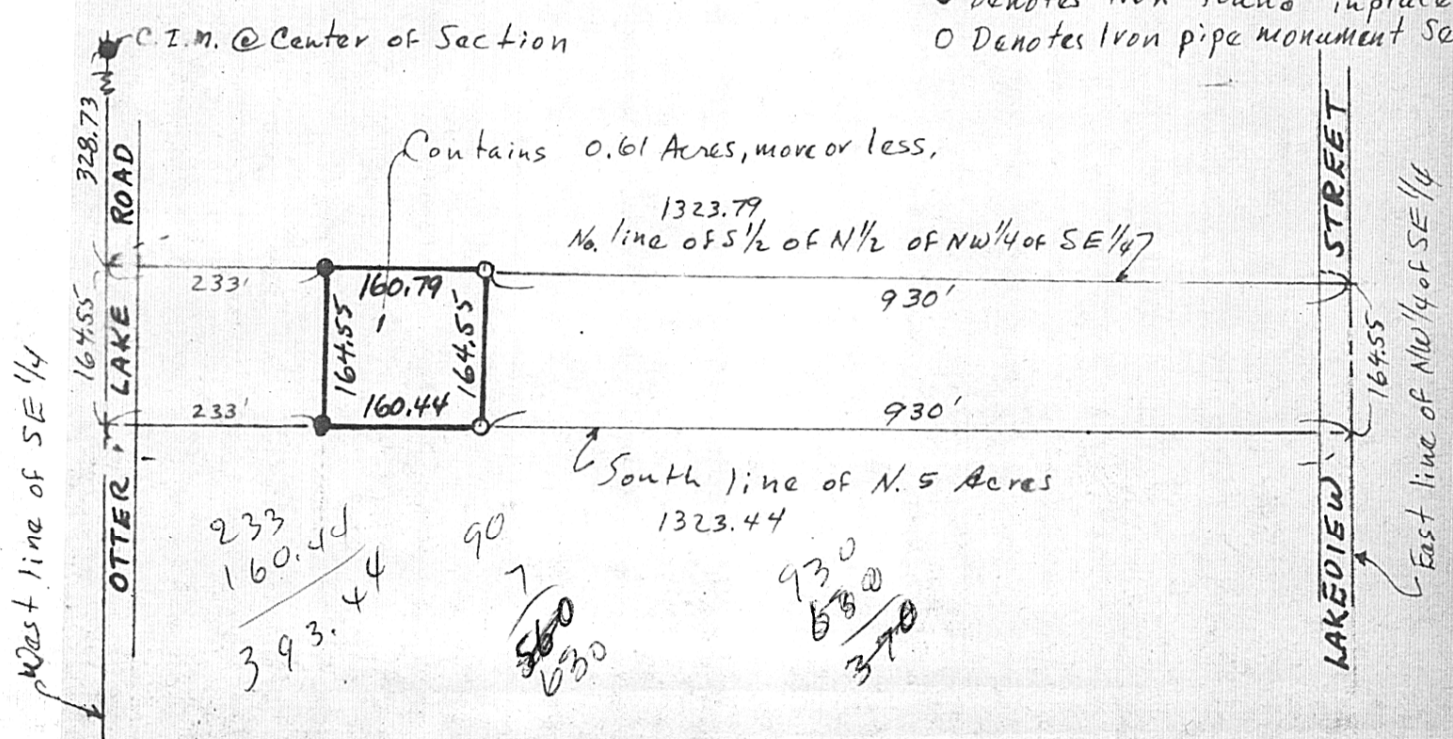 Denotes Iron found inplace
C.I.M. @ Center of Section
O Denotes Iron pipe monument Se
328.73
OTTER LAKE ROAD
Contains 0.61 Acres, more or less,
1323.79
No. line of S½ of N½ of NW¼ of SE¼
233'
160.79
930'
164.55
164.55
164.55
164.55
233'
160.44
930'
South line of N. 5 Acres
1323.44
West line of SE ¼
LAKEVIEW STREET
East line of NW¼ of SE¼
233
160.44
393.44
90
7
560
630
930
370